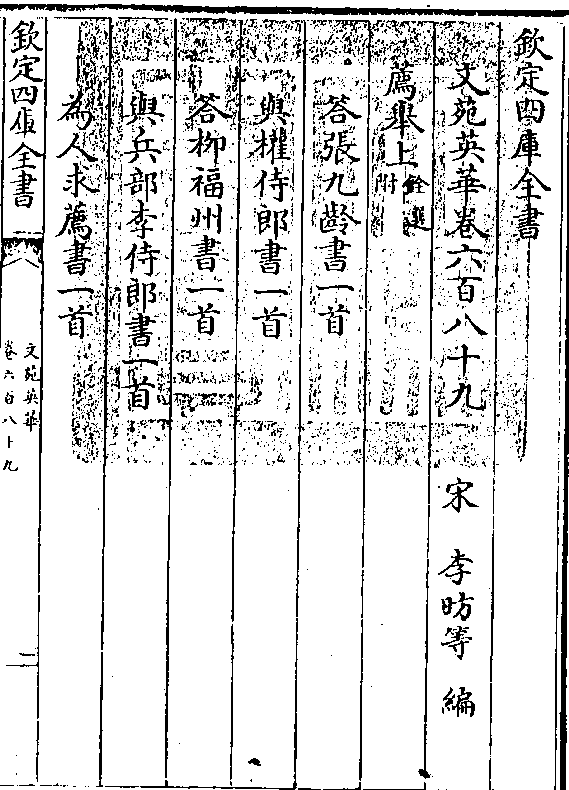 欽定四庫全書
文苑英華卷六百八十九
宋 李昉等 編
薦舉上 銓選附
答張九齡書一首
與權侍郎書一首
答栁福州書一首
與兵部李侍郎書一首
為人求薦書一首
欽定四庫全書
文苑英華
卷六百八十九
二